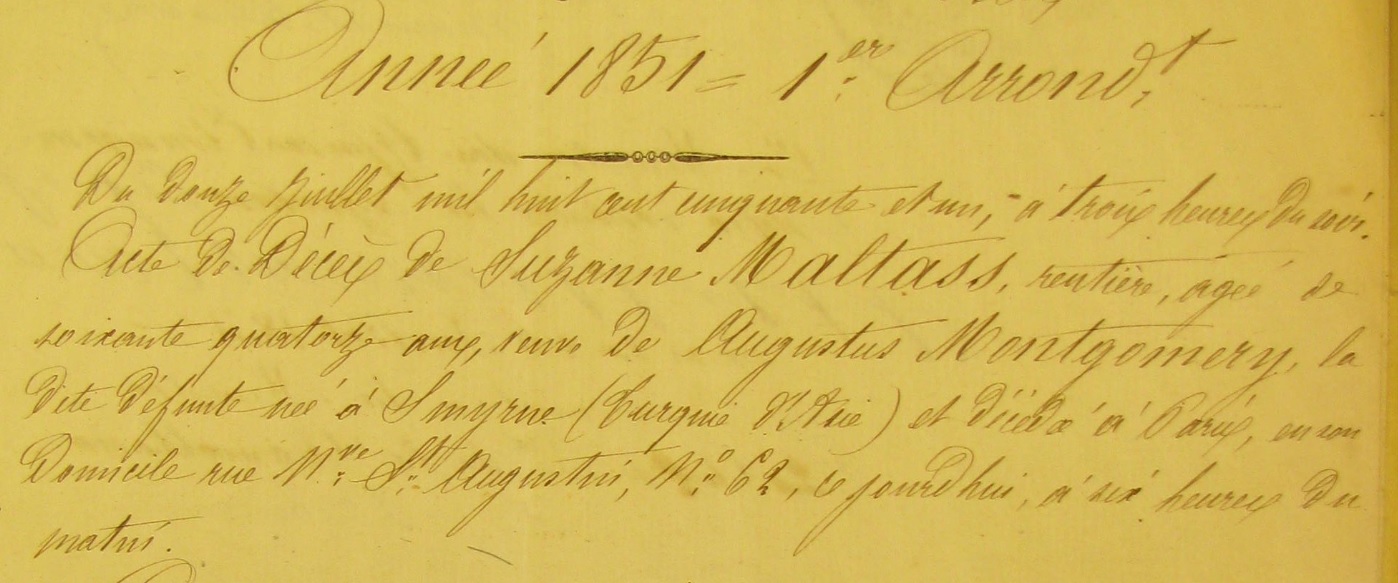 Année 1851 = 1er Arrondt
Du douze Juillet mil huit cent cinquante et un, à trois heures du soir.
Acte de Décès de Suzanne Maltass, rentière, âgée de
soixante quatorze ans, veuve de Augustus Montgomery, la
dite défunte née à Smyrne (Turquie d'Asie) et décédée à Paris, en son
Domicile rue Nve St Augustin, No 62, ce jourd'hui, à six heures du
matin.